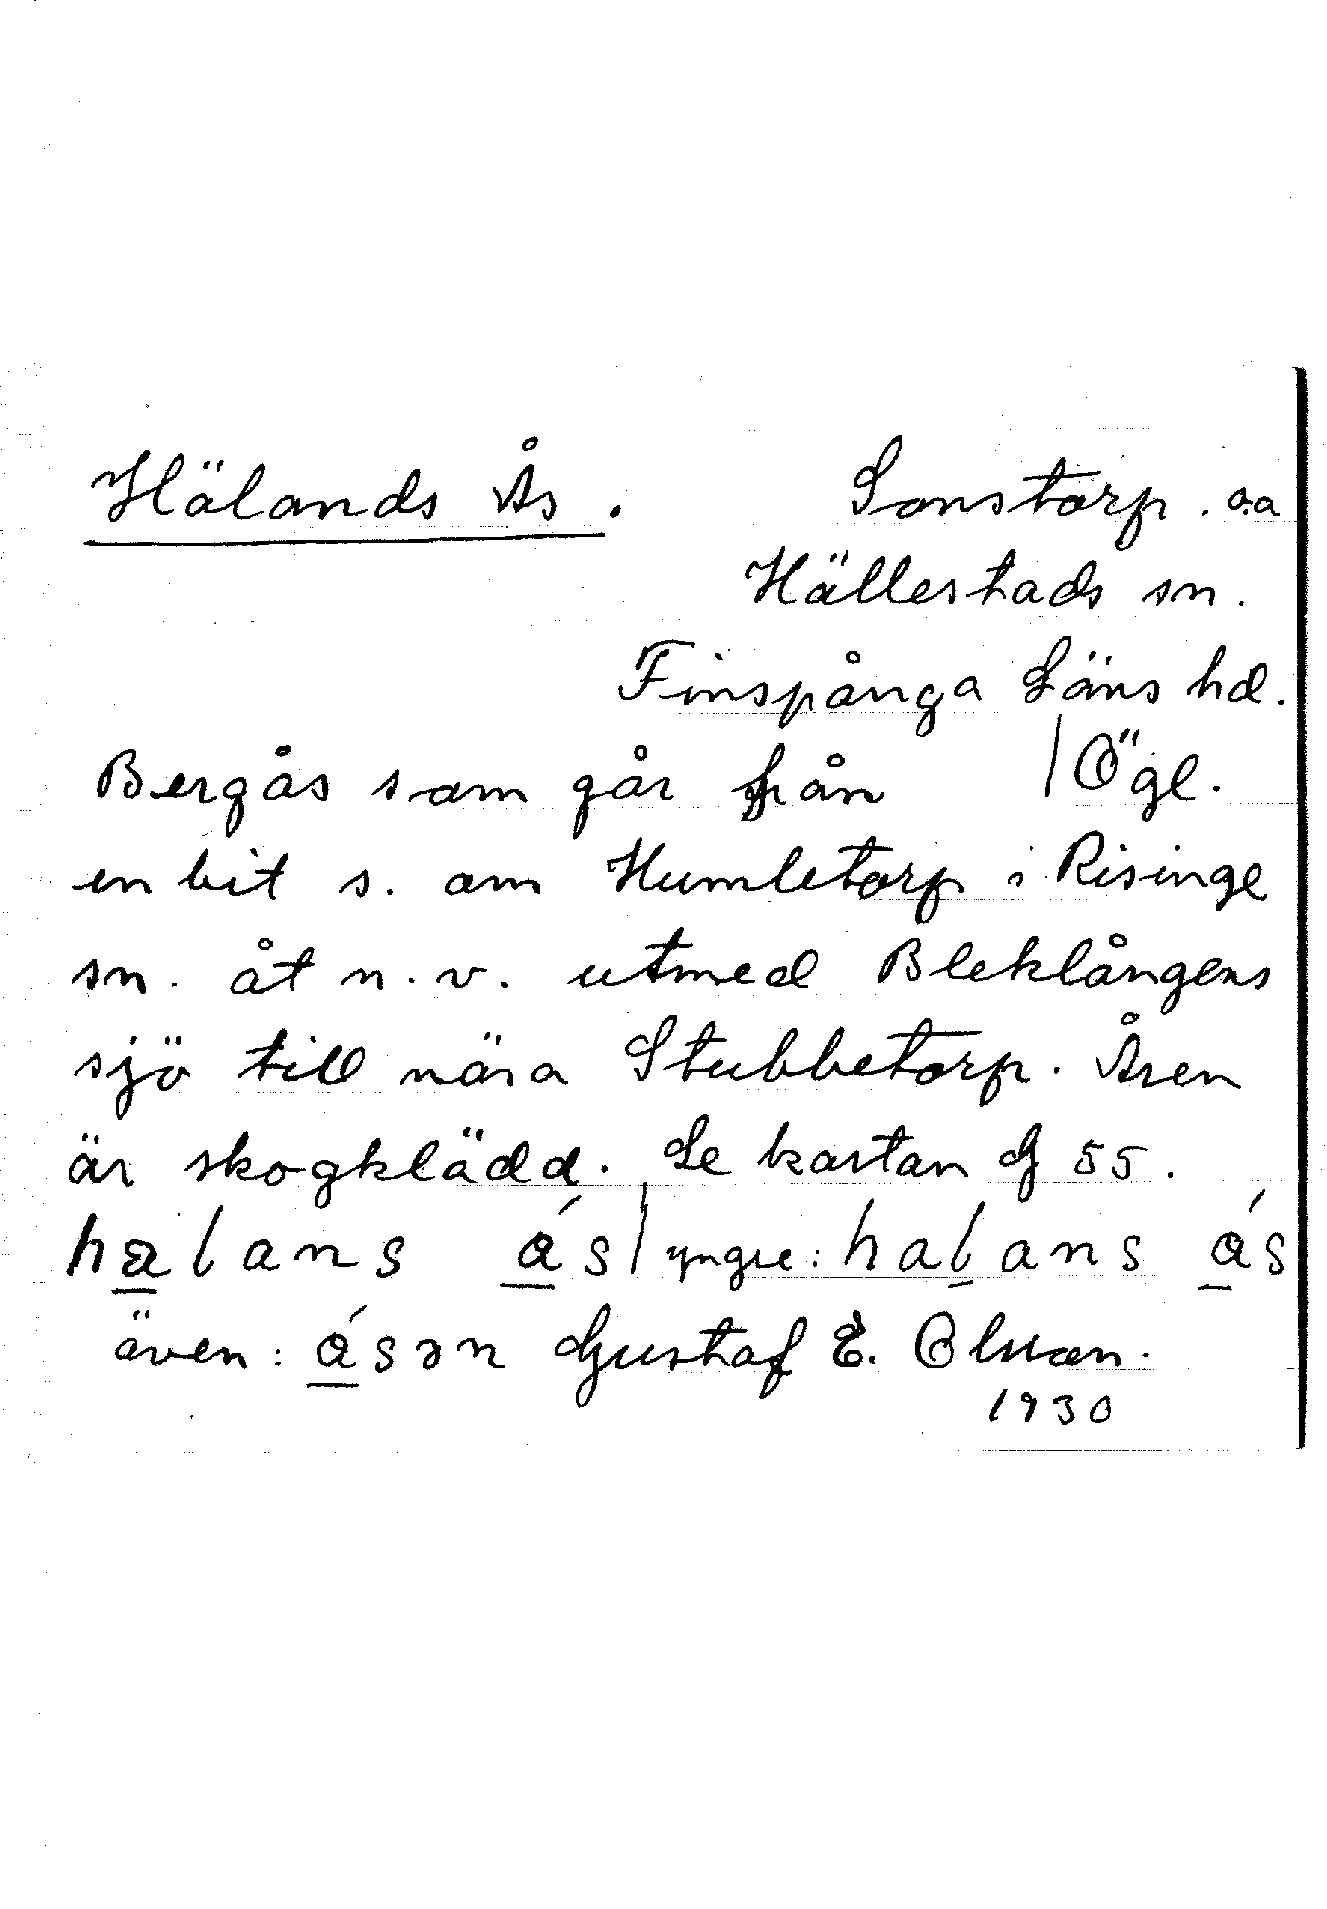 Hälands Ås. Sonstorp. o.a
Hällestads sn.
Finspånga Läns hd.
Bergås som går från /Ögl.
en bit s. om Humletorp i Risinge
sn. åt n.v. utmed Bleklångens
sjö till nära Stubbetorp. Åsen
är skogklädd. Se kartan G 55.
halans ás/yngre: halans ás
även: ásən Gustaf E. Olsson.
1930